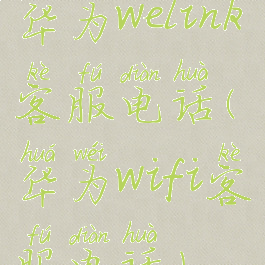 华为welink
kè fú diàn huà
客服电话(
huá wéi kè
华为wifi客
fú diàn huà
服电话)